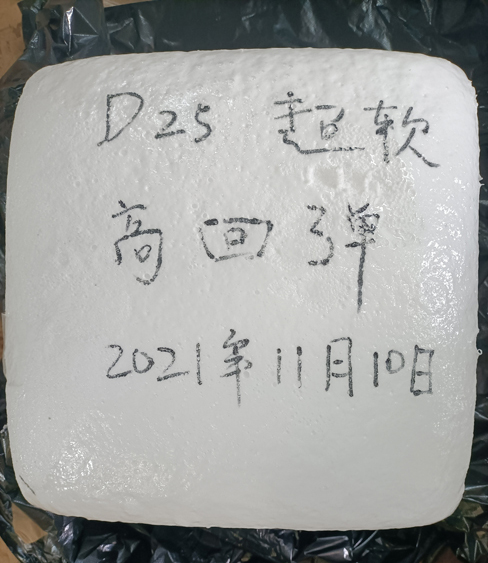 D25 超软
高回弹
2021年11月10日